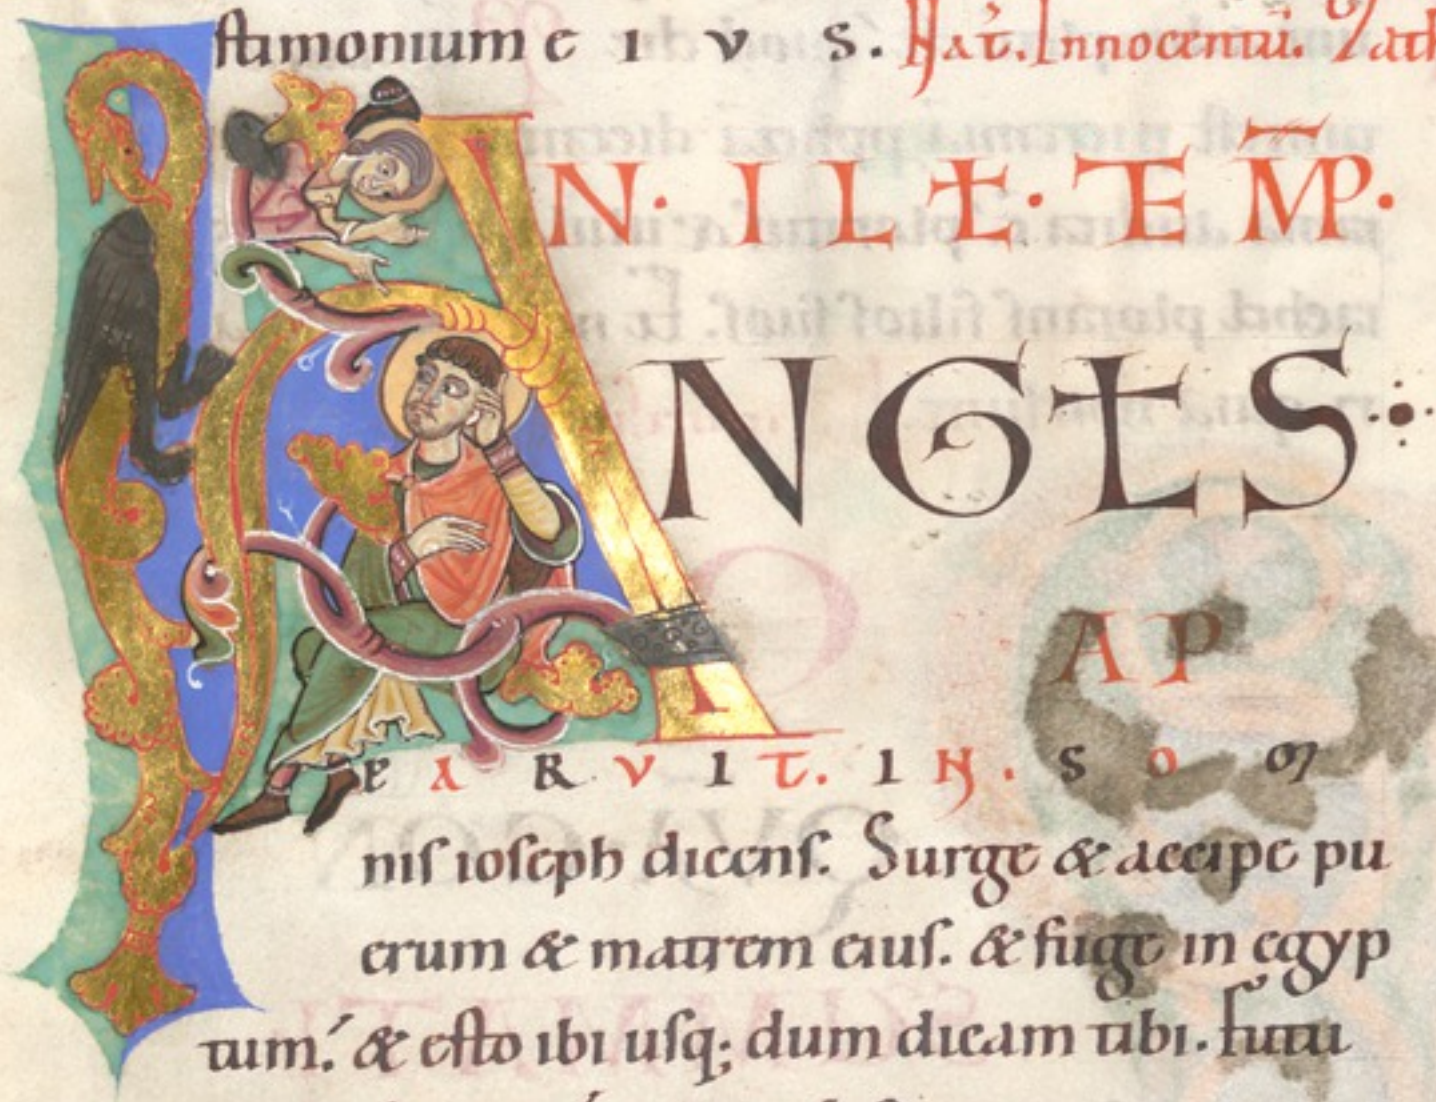 stimonium e i v s. Nat̄. Innocentiū. Math
IN · ILŁ · TEM̄P ·
ANGŁS
AP
PARVIT. IN. SOM
nis ioseph dicens. Surge & accipe pu
erum & matrem eius. & fuge in egyp
tum. & esto ibi usq; dum dicam tibi. futu